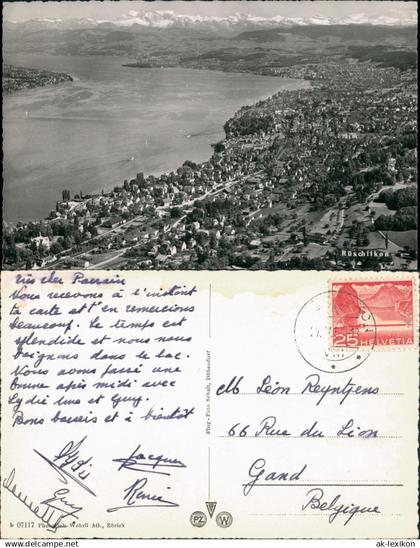 Rüschlikon
Très cher Parrain
Nous recevons à l'instant
ta carte et t'en remercions
beaucoup. Le temps est
splendide et nous nous
baignons dans le lac.
Nous avons passé une
bonne après midi avec
Lydie Ume et Guy.
Bons baisers et à bientôt
Lydie
Jacques
Guy
Renée
Flug-Foto Schulz, Dübendorf
M Léon Reyntjens
66 Rue St. Léon
Gand
Belgique
25 HELVETIA
VIII
PZ W
b 07117 Wehrli AG., Zürich
ak-lexikon
ak-lexikon.com